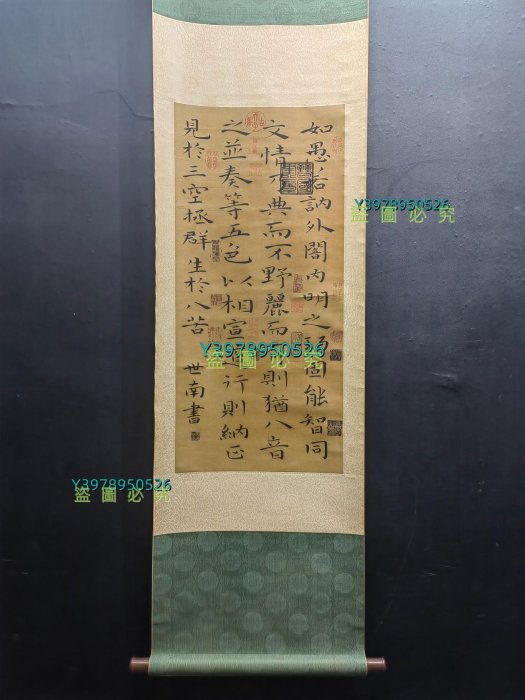 如愚若訥外闇內明之固能智同
文情典而不野麗而則猶八音
之並奏等五色以相宣行則納正
見於三空拯群生於八苦
世南書
Y3978950526
盜圖必究
Y3978950526
盜圖必究
Y3978950526
盜圖必究